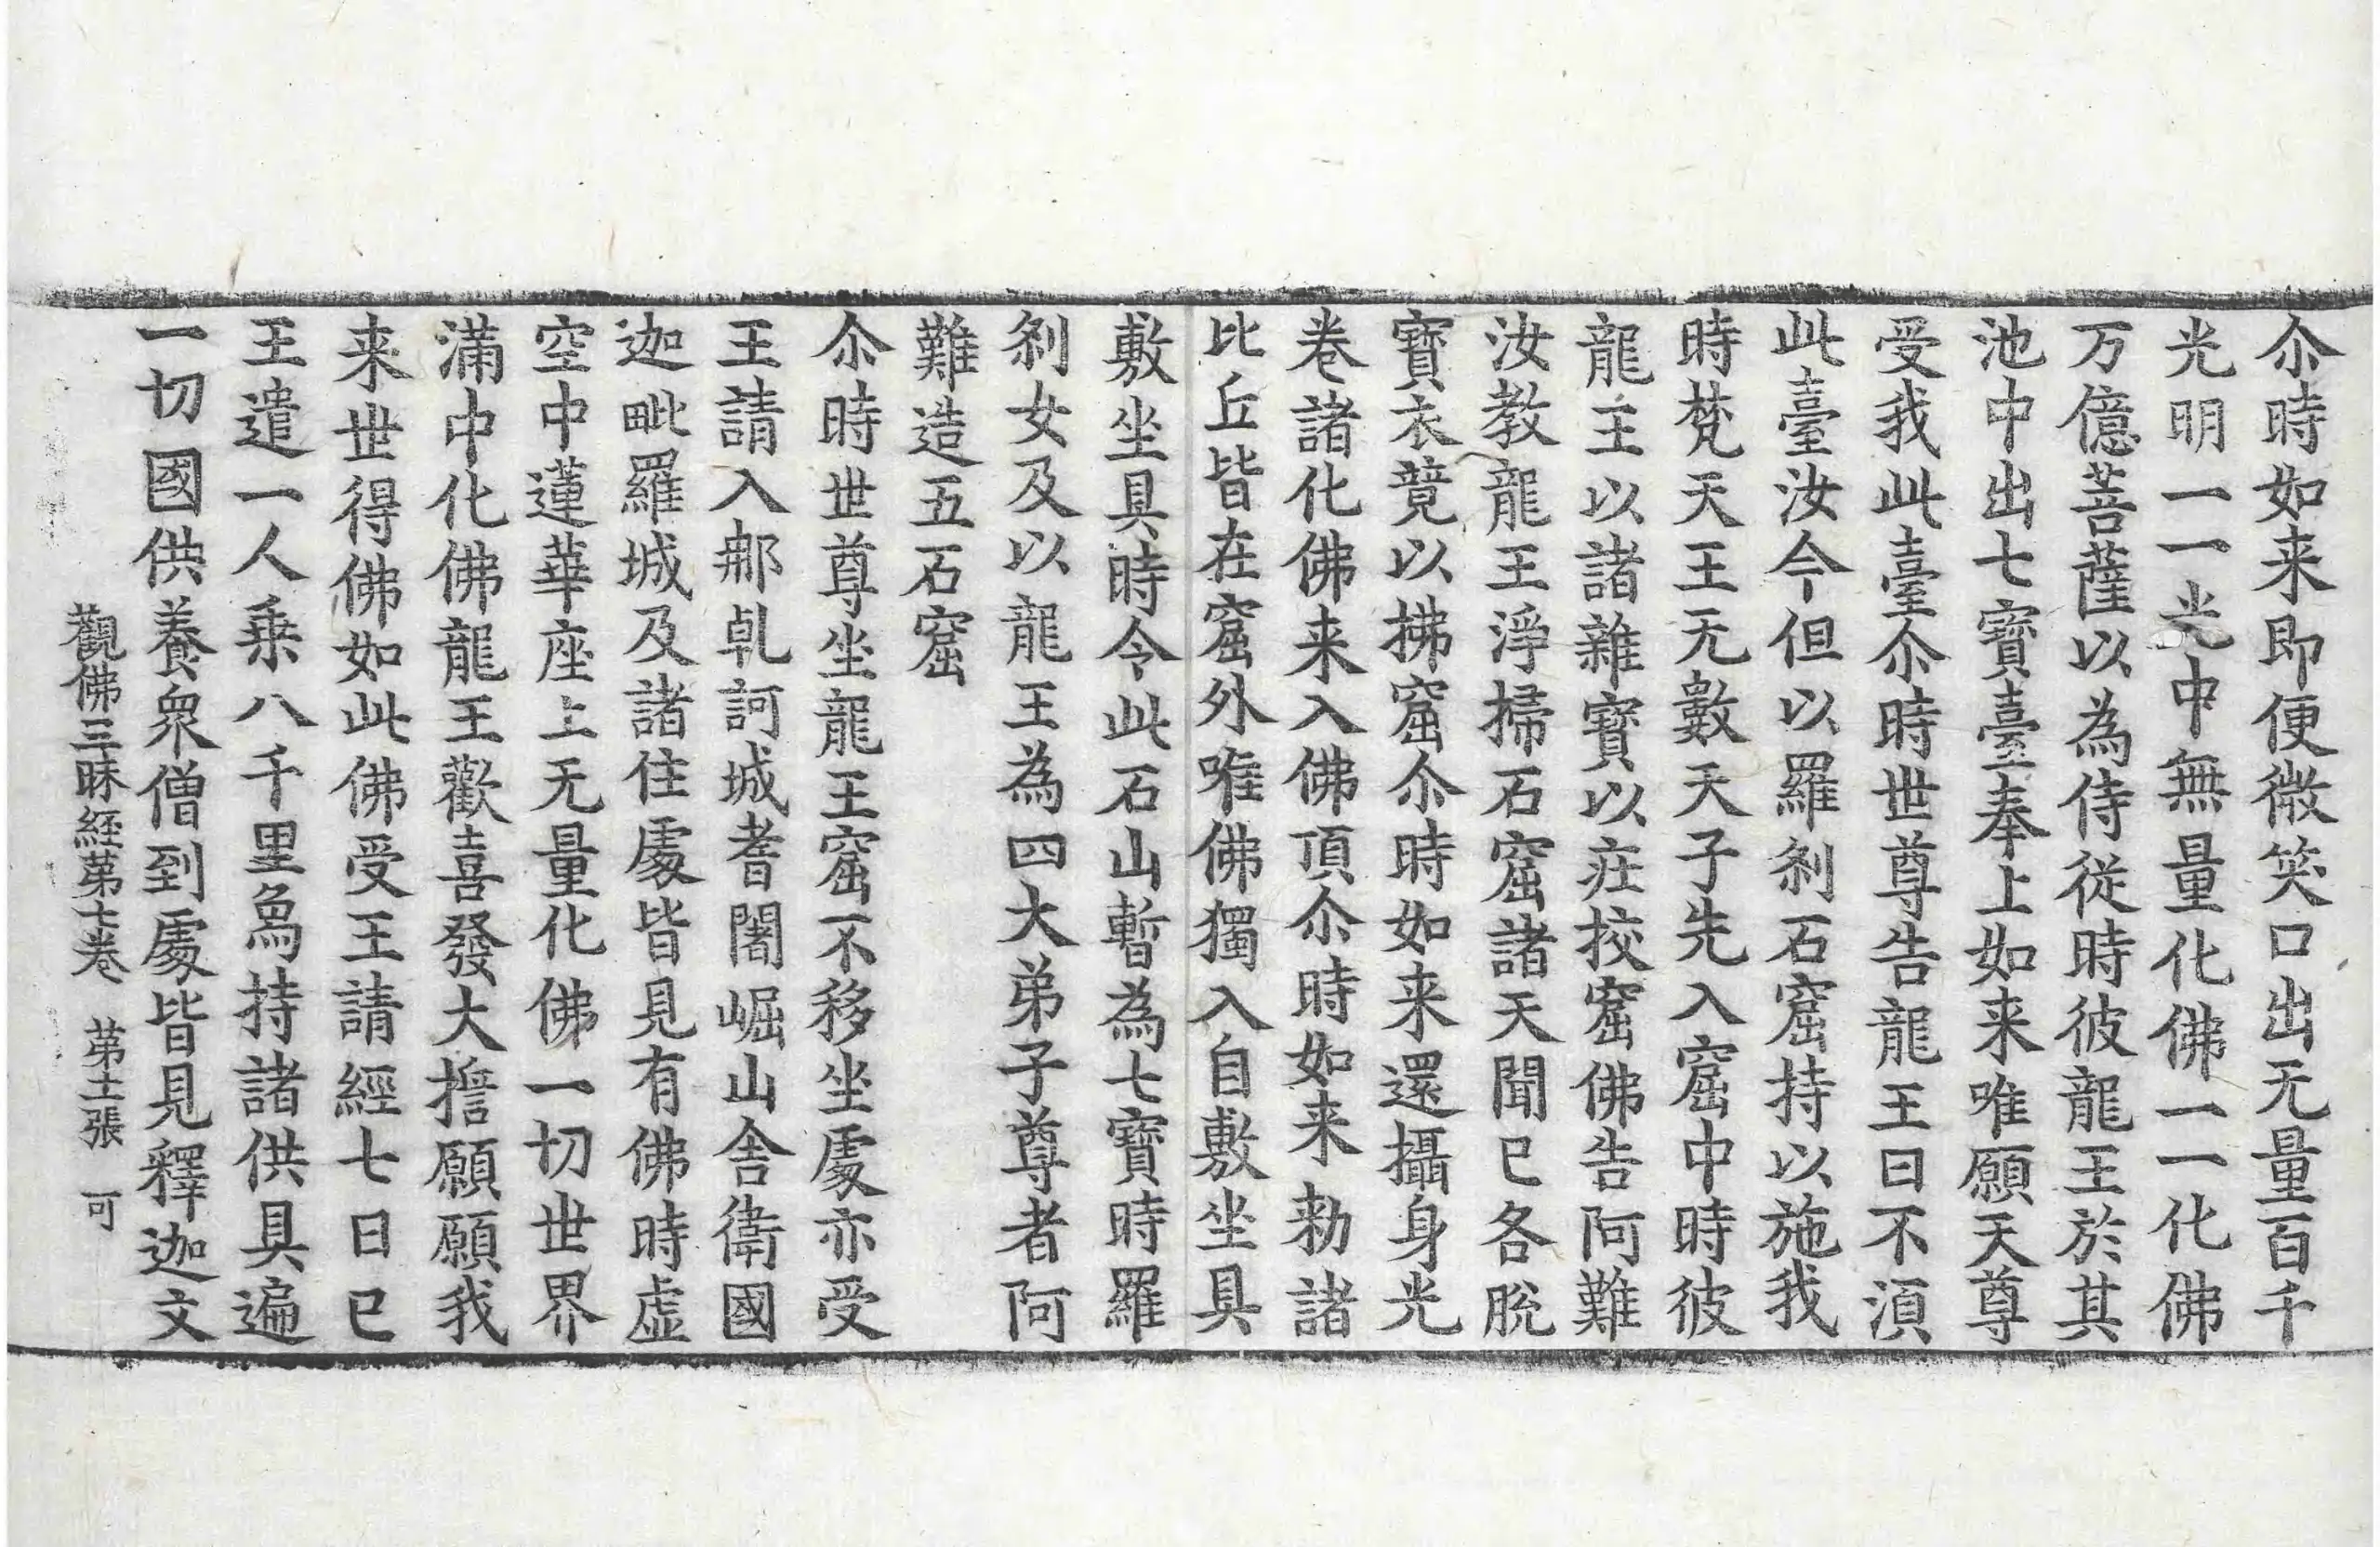 尒時如来即便微笑口出无量百千
光明一一光中無量化佛一一化佛
万億菩薩以為侍従時彼龍王於其
池中出七寶臺奉上如来唯願天尊
受我此臺尒時世尊告龍王曰不湏
此臺汝今但以羅刹石窟持以施我
時梵天王无數天子先入窟中時彼
龍王以諸雜寶以莊挍窟佛告阿難
汝教龍王淨掃石窟諸天聞已各脫
寶衣競以拂窟尒時如来還攝身光
卷諸化佛来入佛頂尒時如来勑諸
比丘皆在窟外唯佛獨入自敷坐具
敷坐具時令此石山暫為七寶時羅
刹女及以龍王為四大弟子尊者阿
難造五石窟
尒時世尊坐龍王窟不移坐處亦受
王請入那乹訶城耆闍崛山舎衛國
迦毗羅城及諸住處皆見有佛時虚
空中蓮華座上无量化佛一切世界
滿中化佛龍王歡喜發大擔願願我
来世得佛如此佛受王請經七日已
王遣一人乗八千里烏持諸供具遍
一切國供養衆僧到處皆見釋迦文
觀佛三昧経第七卷　第十二張　可